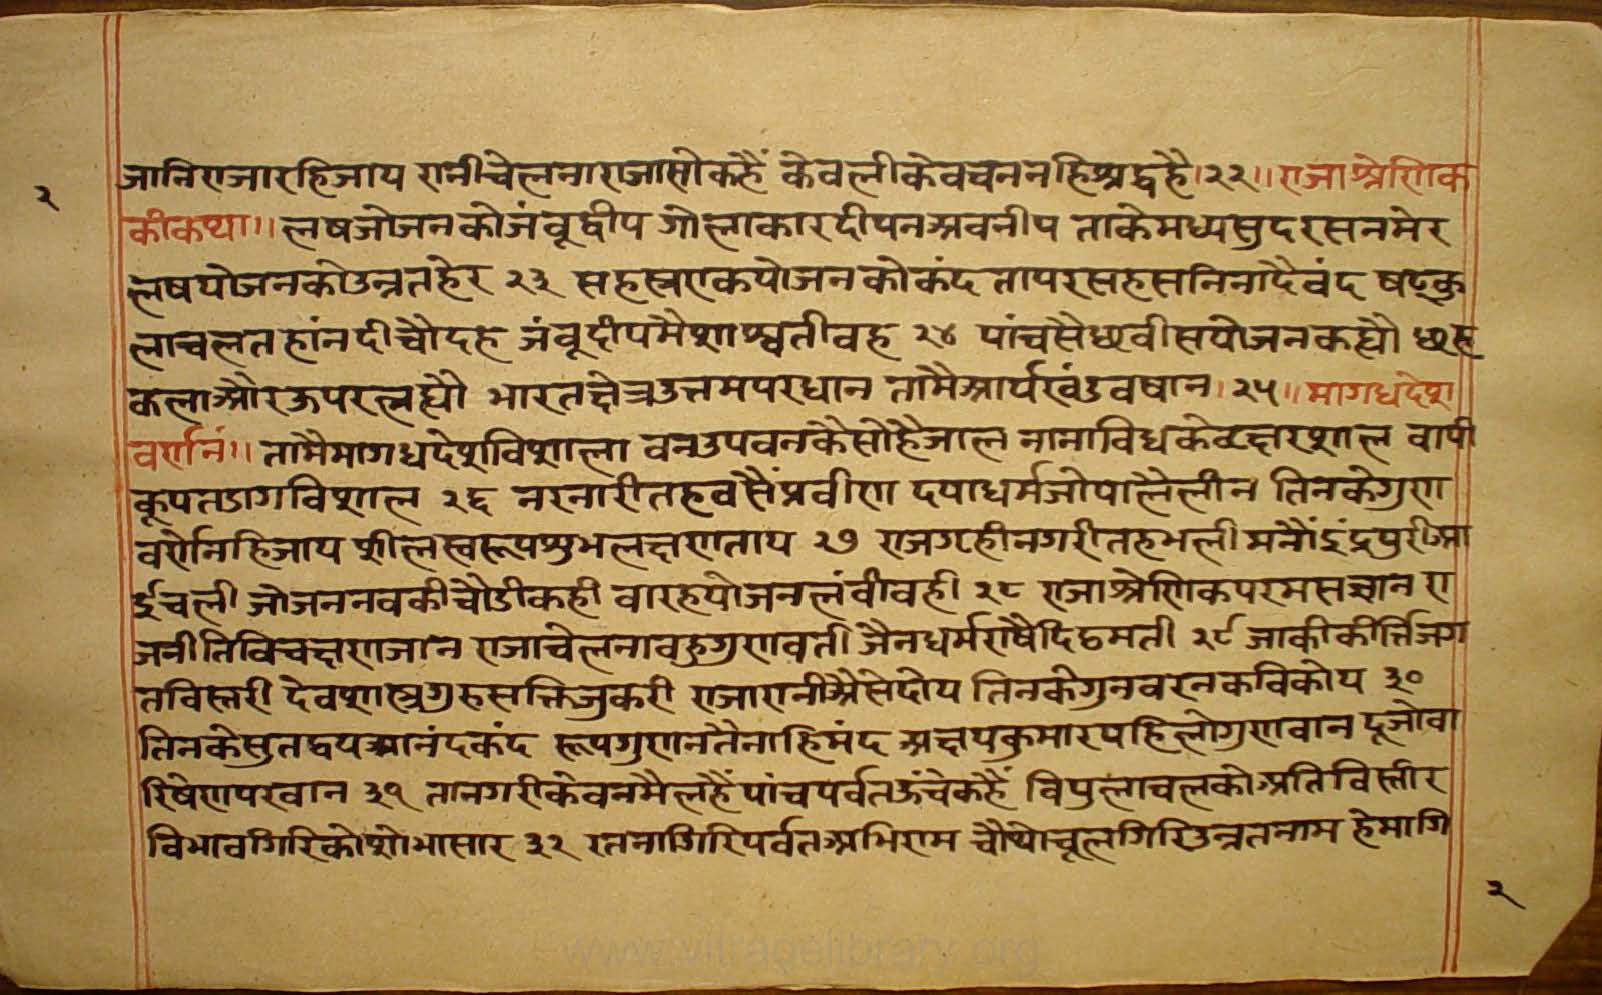 २
जानिराजारहिजाय रानीचेलनाराजासोकहैं केवलीकेवचननहिश्रद्धहै।२२॥राजाश्रेणिक
कीकथा॥ लषजोजनकोजंबूद्वीप गोलाकारदीपनअवनीप ताकेमध्यसुदरसनमेर
लषयोजनकोउन्नतहेर २३ सहस्रएकयोजनकोकंद तापरसहसनिनादैवंद षट्कु
लाचलतहांनदीचौदह जंबूदीपमैशाश्वतीवह २४ पांचसैछवीसयोजनकह्यौ छह
कलाऔरऊपरलह्यौ भारतक्षेत्रउत्तमपरधान तामैआर्यखंडवषान।२५॥मागधदेश
वर्णनं॥ तामैमागधदेशविशाला वनउपवनकैसोहैजाल नानाविधकेवृक्षरशाल वापी
कूपतडागविशाल २६ नरनारीतहवसैंप्रवीण दयाधर्मजोपालैलीन तिनकेगुण
वर्णेनहिजाय शीलस्वरूपशुभलक्षणताय २७ राजगृहीनगरीतहभली मनौंइंद्रपुरीआ
ईचली जोजननवकीचौडीकही वारहयोजनलंवीवही २८ राजाश्रेणिकपरमसज्ञान रा
जनीतिविचक्षणजान राजाचेलनावहुगुणवती जैनधर्मराषैदिढमती २९ जाकीकीर्त्तिजग
तविस्तरी देवशास्त्रगुरुसक्तिजुकरी राजारानीऐसेदोय तिनकेगुनवरनकविकोय ३०
तिनकेसुतद्वयआनंदकंद रूपगुणनतैनाहिमंद अक्षयकुमारपहिलोगुणवान दूजोवा
रिषेणपरवान ३१ तानगरीकेवनमैलहैं पांचपर्वतऊंचेकहैं विपुलाचलकोअतिविस्तीर
विभावगिरिकोशोभासार ३२ रतनागिरिपर्वतअभिराम चौथोचूलगिरिउन्नतनाम हेमागि
२
www.vitragelibrary.org